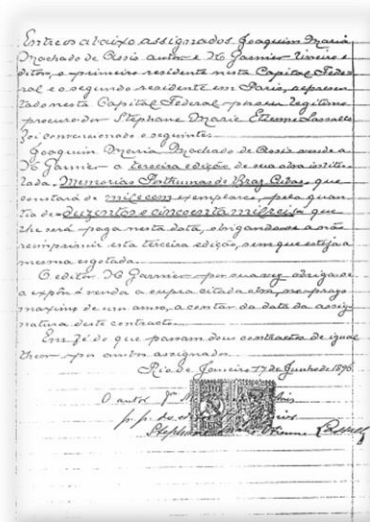 Entre os abaixo assignados Joaquim Maria
Machado de Assis autor e H. Garnier livreiro e
ditor, o primeiro residente nesta Capital Fede-
ral e o segundo residente em Paris, represen-
tado nesta Capital Federal por seu legitimo
procurador Stephane Marie Etienne Lassalle
foi convencionado o seguinte:
Joaquim Maria Machado de Assis vende a
H. Garnier a terceira edição de sua obra intitu-
lada, Memorias Posthumas de Braz Cubas, que
constará de mil e cem exemplares, pela quan
tia de duzentos e cincoenta mil reis que
lhe será paga nesta data, obrigando-se a não
reimprimir esta terceira edição, sem que esteja a
mesma esgotada.
O editor H. Garnier por sua vez obriga-se
a expôr á venda a supra citada obra, no prazo
maximo de um anno, a contar da data da assig-
natura deste contracto.
Em fé do que passam dous contractos de igual
theor por ambos assignados.
Rio de Janeiro 17 de Junho de 1896
O autor
Stephane Etienne Lassalle